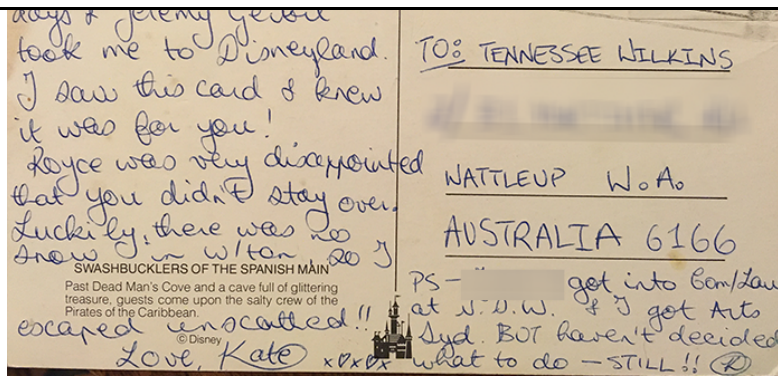 days & Jeremy
took me to Disneyland.
I saw this card & knew
it was for you!
Royce was very disappointed
that you didn't stay over.
Luckily, there was no
snow in w/ton, so I
SWASHBUCKLERS OF THE SPANISH MAIN
Past Dead Man's Cove and a cave full of glittering
treasure, guests come upon the salty crew of the
Pirates of the Caribbean.
escaped unscathed!!
© Disney
Love, Kate xoxox
TO: TENNESSEE WILKINS
WATTLEUP W.A.
AUSTRALIA 6166
PS - got into Com/Law
at & I got Arts
Syd. BUT haven't decided
what to do - STILL!!